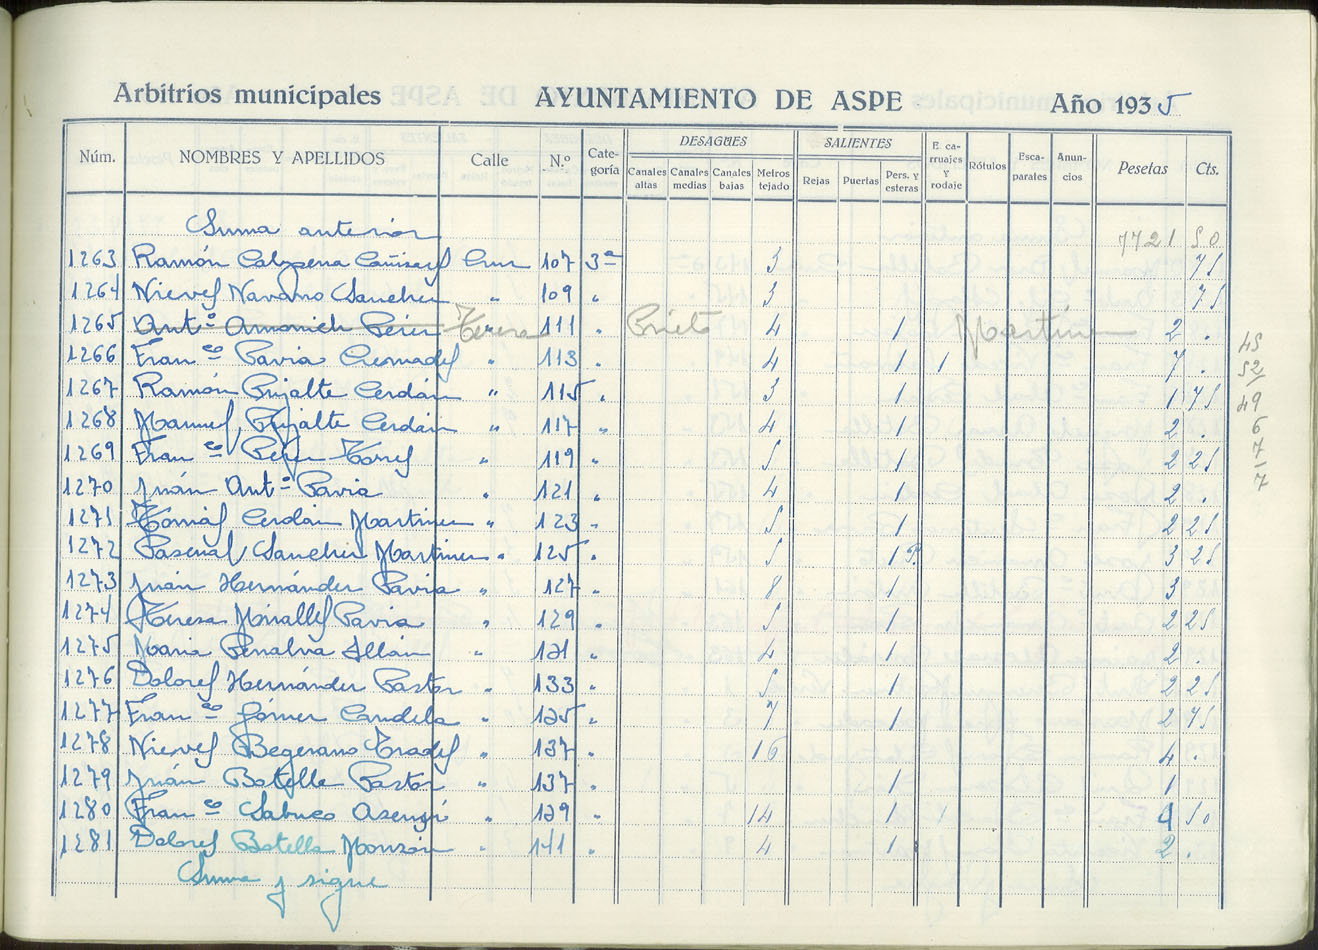 Arbitrios municipales AYUNTAMIENTO DE ASPE Año 1935
Núm. NOMBRES Y APELLIDOS Calle N.º Cate-goría DESAGÜES Canales altas Canales medias Canales bajas Metros tejado SALIENTES Rejas Puertas Pers. y esteras E. ca-rruajes y rodaje Rótulos Esca-parates Anun-cios Pesetas Cts.
Suma anterior 7721 50
1263 Ramón Calpena Cruz 107 3ª 3 75
1264 Nieves Navarro Sanchez " 109 " 3 75
1265 Antº Amorich Pérez Teresa " 111 " Prieto 4 1 Martinez 2 .
1266 Franco Pavia Cremades " 113 " 4 1 1 7 . 45
52
1267 Ramón Pujalte Cerdán " 115 " 3 1 1 75
1268 Manuel Pujalte Cerdán " 117 " 4 1 2 . 49
6
1269 Franco Pérez Torres " 119 " 5 1 2 25 7
1270 Juán Antº Pavia " 121 " 4 1 2 . 7
1271 Tomás Cerdan Martinez " 123 " 5 1 2 25
1272 Pascual Sanchez Martinez " 125 " 5 1 P. 3 25
1273 Juán Hernández Pavia " 127 " 8 1 3 .
1274 Teresa Miralles Pavia " 129 " 5 1 2 25
1275 Maria Penalva Illán " 131 " 4 1 2 .
1276 Dolores Hernández Pastor " 133 " 5 1 2 25
1277 Franco Gómez Candela " 135 " 7 1 2 75
1278 Nieves Begerano Prades " 137 " 16 4 .
1279 Juán Botella Pastor " 137 " 1 1
1280 Franco Sabuco Asensi " 139 " 14 1 1 9 50
1281 Dolores Botella Monzón " 141 " 4 1 2 .
Suma y sigue